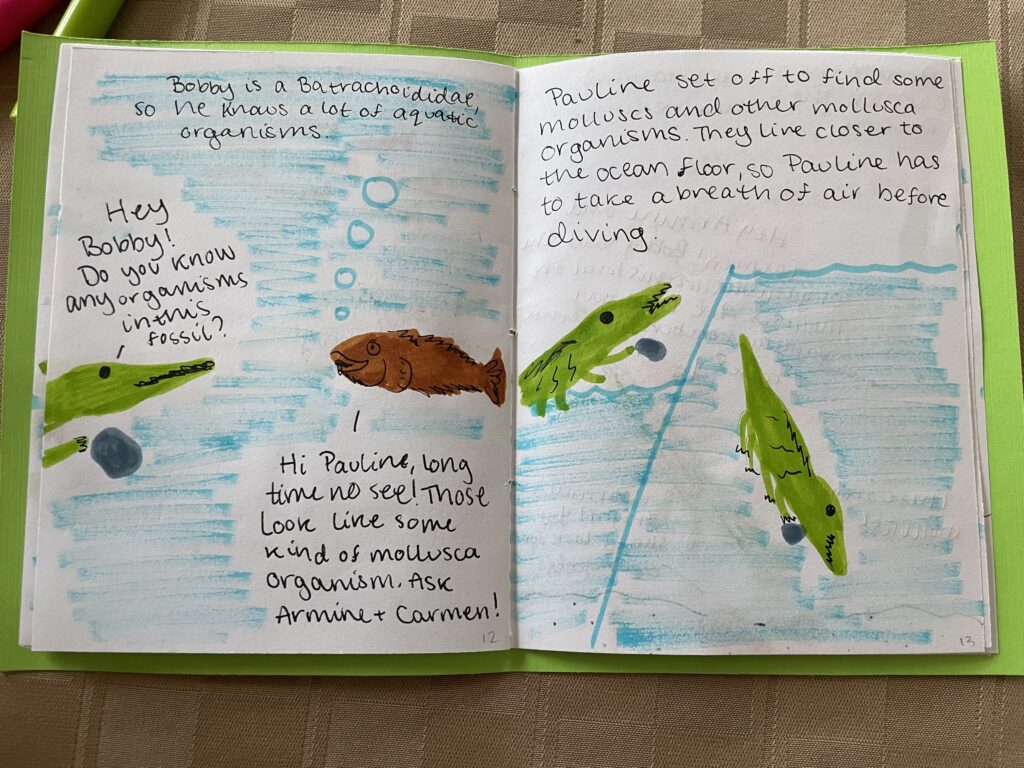 Bobby is a Batrachoididae,
so he knows a lot of aquatic
organisms.
Hey
Bobby!
Do you know
any organisms
in this
fossil?
Hi Pauline, long
time no see! Those
look like some
kind of mollusca
organism. Ask
Armine + Carmen!
12
Pauline set off to find some
molluscs and other mollusca
organisms. They live closer to
the ocean floor, so Pauline has
to take a breath of air before
diving.
13